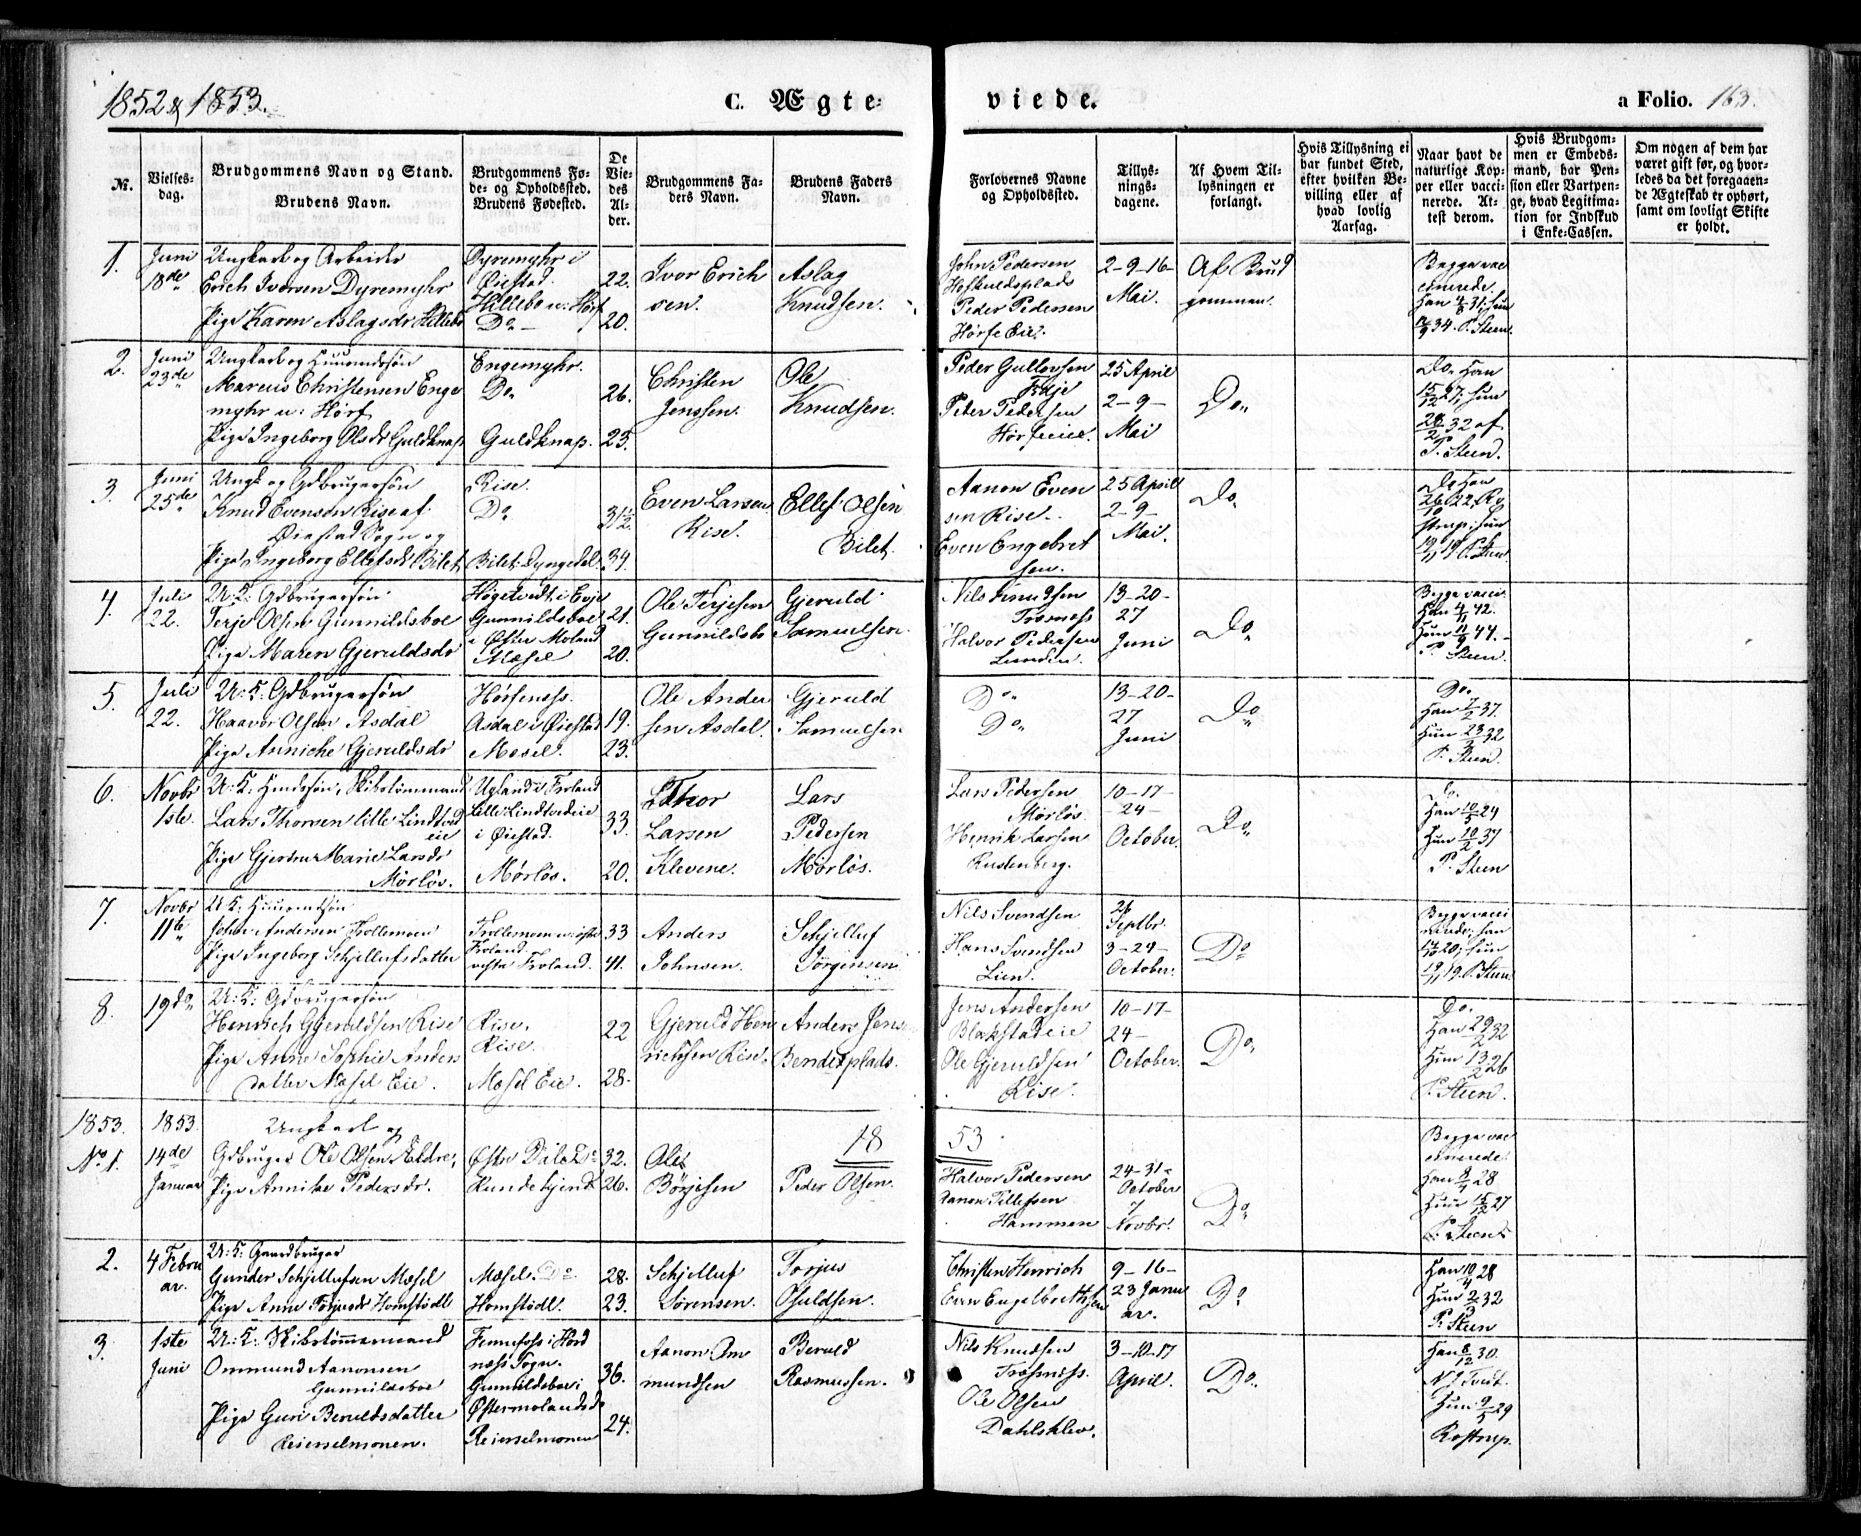 1852 & 1853.
C. Ægte-
viede.
a Folio. 163.
№.
Vielses-
dag.
Brudgommens Navn og Stand.
Brudens Navn.
Brudgommens Fø-
de- og Opholdssted.
Brudens Fødested.
De
Vie-
des
Al-
der.
Brudgommens Fa-
ders Navn.
Brudens Faders
Navn.
Forlovernes Navne
og Opholdssted.
Tillys-
nings-
dagene.
Af Hvem Til-
lysningen er
forlangt.
Hvis Tillysning ei
har fundet Sted,
efter hvilken Be-
villing eller af
hvad lovlig
Aarsag.
Naar havt de
naturlige Kop-
per eller vacci-
nerede. At-
test derom.
Hvis Brudgom-
men er Embeds-
mand, har Pen-
sion eller Vartpen-
ge, hvad Legitima-
tion for Indskud
i Enke-Cassen.
Om nogen af dem har
været gift før, og hvor-
ledes da det foregaaen-
de Ægteskab er ophørt,
samt om lovligt Skifte
er holdt.
1.
Juni
18de
Ungkarl og Arbeider
Erich Iversen Dyremyhr
Pige Karen Aslagsdr Hillebo
Dyremyhr i
Øiestad.
Hillebo u. Hørf
Do
22.
20.
Ivor Erich
sen.
Aslag
Knudsen.
John Pedersen
Hoskuldsplads
Peder Pedersen
Hørfe Eie.
2-9-16-
Mai.
Af Brud
gommen.
Begge vac
cinerede.
P. Steen
2.
Juni
23de
Ungkarl og Huusmdsøn
Marcus Christensen Enge
myhr u: Hørf
Pige Ingeborg Olsdr Guldknap
Engemyhr.
Do
Guldknap.
26.
23.
Christen
Jenssen.
Ole
Knudsen.
Peder Gullovsen
Peder Pedersen
Hørfeeie.
25 April
2-9-
Mai
Do
Do Han
P. Steen.
3.
Juni
25de
Ungk og Gdbrugersøn
Knud Evensen Rise af
Øiestad Sogn og
Pige Ingeborg Ellefsdr Bilet
Rise.
Do
Bilet: Dyngedal.
31½
34.
Even Larsen
Rise.
Ellef Olsen
Bilet.
Aanon Even
sen Rise.
Even Engebret
sen.
25 April
2-9-
Mai.
Do
Do Han
P. Steen
4.
Juli
22.
U: K: Gdbrugersøn
Terje Olsen Gunnildsboe
Pige Maren Gjeruldsdr
Høgetvedt i Evje
Gunnildsboe
i Østre Moland
Mæsel
21.
20.
Ole Terjesen
Gunnildsbo
Gjeruld
Samuelsen.
Nils Knudsen
Tvesness
Halvor Pedersen
Lunden.
13-20-
27
Juni
Do
Begge vacci
Han 4/11 42.
Hun 11/9 44.
P. Steen.
5.
Juli
22.
U: K: Gdbrugersøn
Haavor Olsen Asdal
Pige Anniche Gjeruldsdr
Hørfeness.
Asdal i Øiestad
Mæsel.
19.
23.
Ole Ander
sen Asdal.
Gjeruld
Samuelsen
Do
Do
13-20-
27
Juni
Do
Do
Han 7/2 37.
P. Steen.
6.
Novbr
1ste.
Lars Thorsen lille Lindtved
eie
Pige Gjerthe Marie Larsdr
Mørløs.
Ugland i Froland
lille Lindtvedeie
i Øiestad.
Mørløs.
33.
20.
Thor
Larsen
Klevene.
Lars
Pedersen
Mørløs.
Lars Pedersen
Mørløs
Henrik Larsen
Rustenberg.
10-17-
-24-
October.
Do
Do
P. Steen
7.
Novbr
11te
U: K: Huusmdsøn
John Andersen Trollemoen
Pige Ingeborg Schjellufsdatter
Froland.
vestre Froland.
33
41.
Anders
Johnsen.
Schjelluf
Jørgensen
Nils Svendsen
Hans Svendsen
Lien.
26
Septbr.
3-24-
October.
Do
Begge vacci
P. Steen
8.
19de
U: K: Gdbrugersøn
Henrich Gjeruldsen Rise
Pige Anne Sophie Anders
datter Mæsel Eie.
Rise.
Rise
Mæsel Eie.
22
28.
Gjeruld Hen
richsen Rise.
Anders Jens
Bendixplads.
Jens Andersen
Blakstadeie
Ole Gjeruldsen
Rise.
10-17-
24-
October.
Do
Do.
Han 29/2 32
Hun 13/2 26
P. Steen.
1853.
1853.
18
53
No 1.
14de
Januar
Ungkarl og
Gdbruger Ole Olsen Ældre,
Pige Annike Pedersdr.
32.
26.
Ole
Børjesen
Peder Olsen.
Halvor Pedersen
Aanon Tellefsen
Hammen
24-31-
October
7
Novbr.
Do
Begge vac
cinerede.
P. Steen
2.
4 Febru
ar.
U: K: Gaardbruger
Gunder Schjellufsen Mæsel
Pige Anne Torjusdr Homstødl
Mæsel. Do
Homstødl.
28.
23.
Schjelluf
Sørensen.
Torjus
Osuldsen.
Christen Henrich
Even Engelbrethsen
9-16-
23 Janu
ar.
Do
Han 10/4 28
P. Steen
3.
1ste
Juni
U: K: Skibstømmermand
Ommund Aanonsen
Gunnildsboe
Pige Guri Beruldsdatter
Reierselmonen.
ness Sogn.
Gunnildsboe i
Østermolands
Reierselmonen
36.
24.
Aanon Om
mundsen
Beruld
Rasmussen.
Nils Knudsen
Ole Olsen
Dahlsklev.
3-10-17
April.
Do
Han 8/12 30.
Hun 9/5 29
Rostrup.